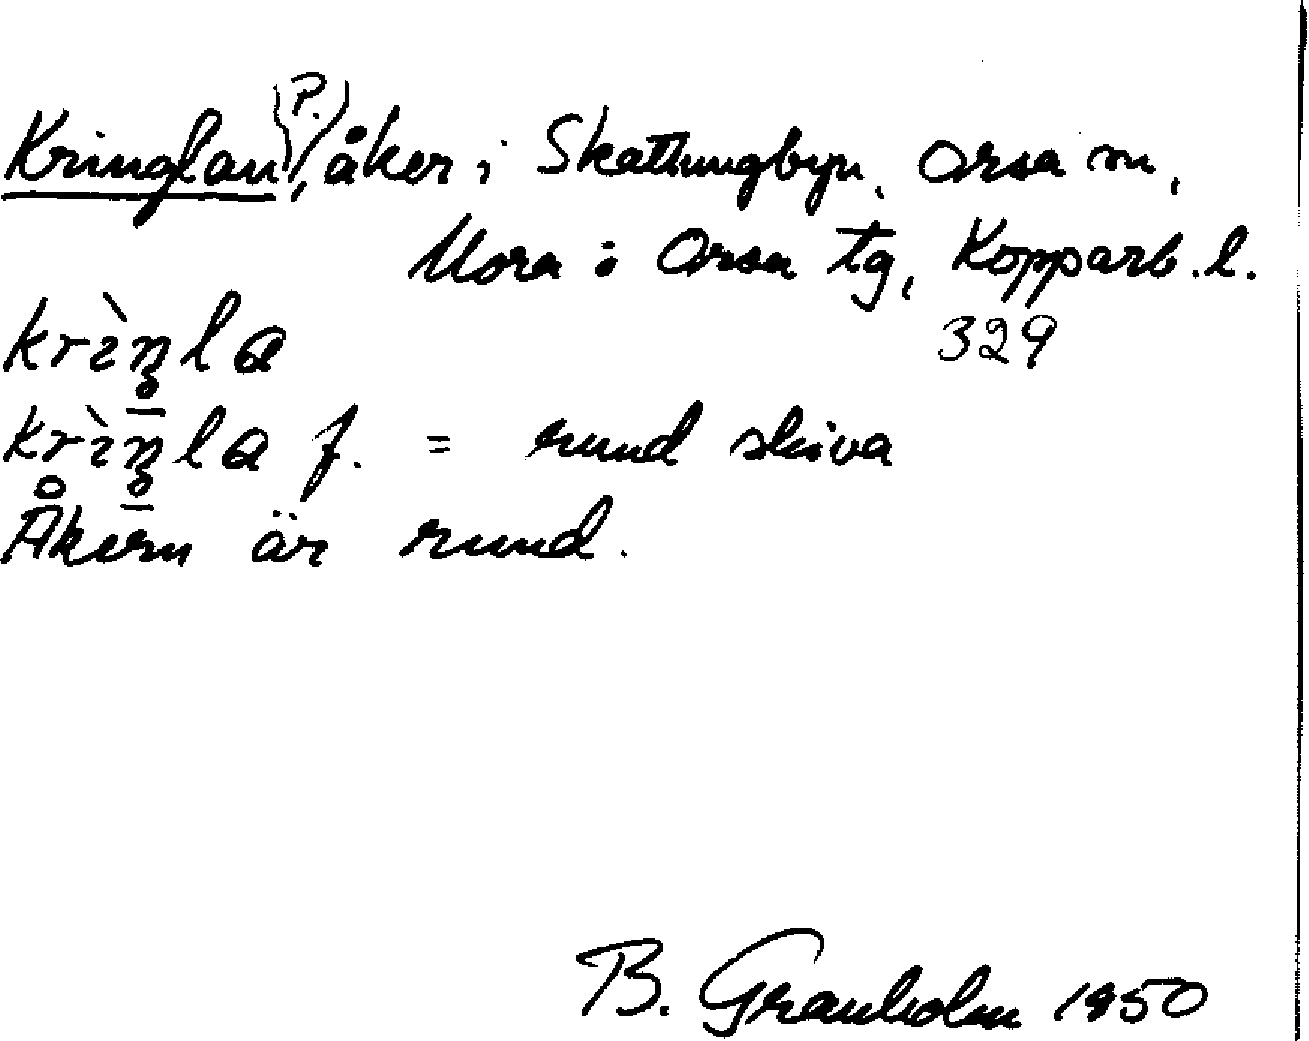 Kringlan (P.), åker i Skattungbyn, Orsa sn,
Mora o Orsa tg, Kopparb. l.
329
krìŋla
krìŋla f. = rund skiva
Åkern är rund.
B. Granholm 1950